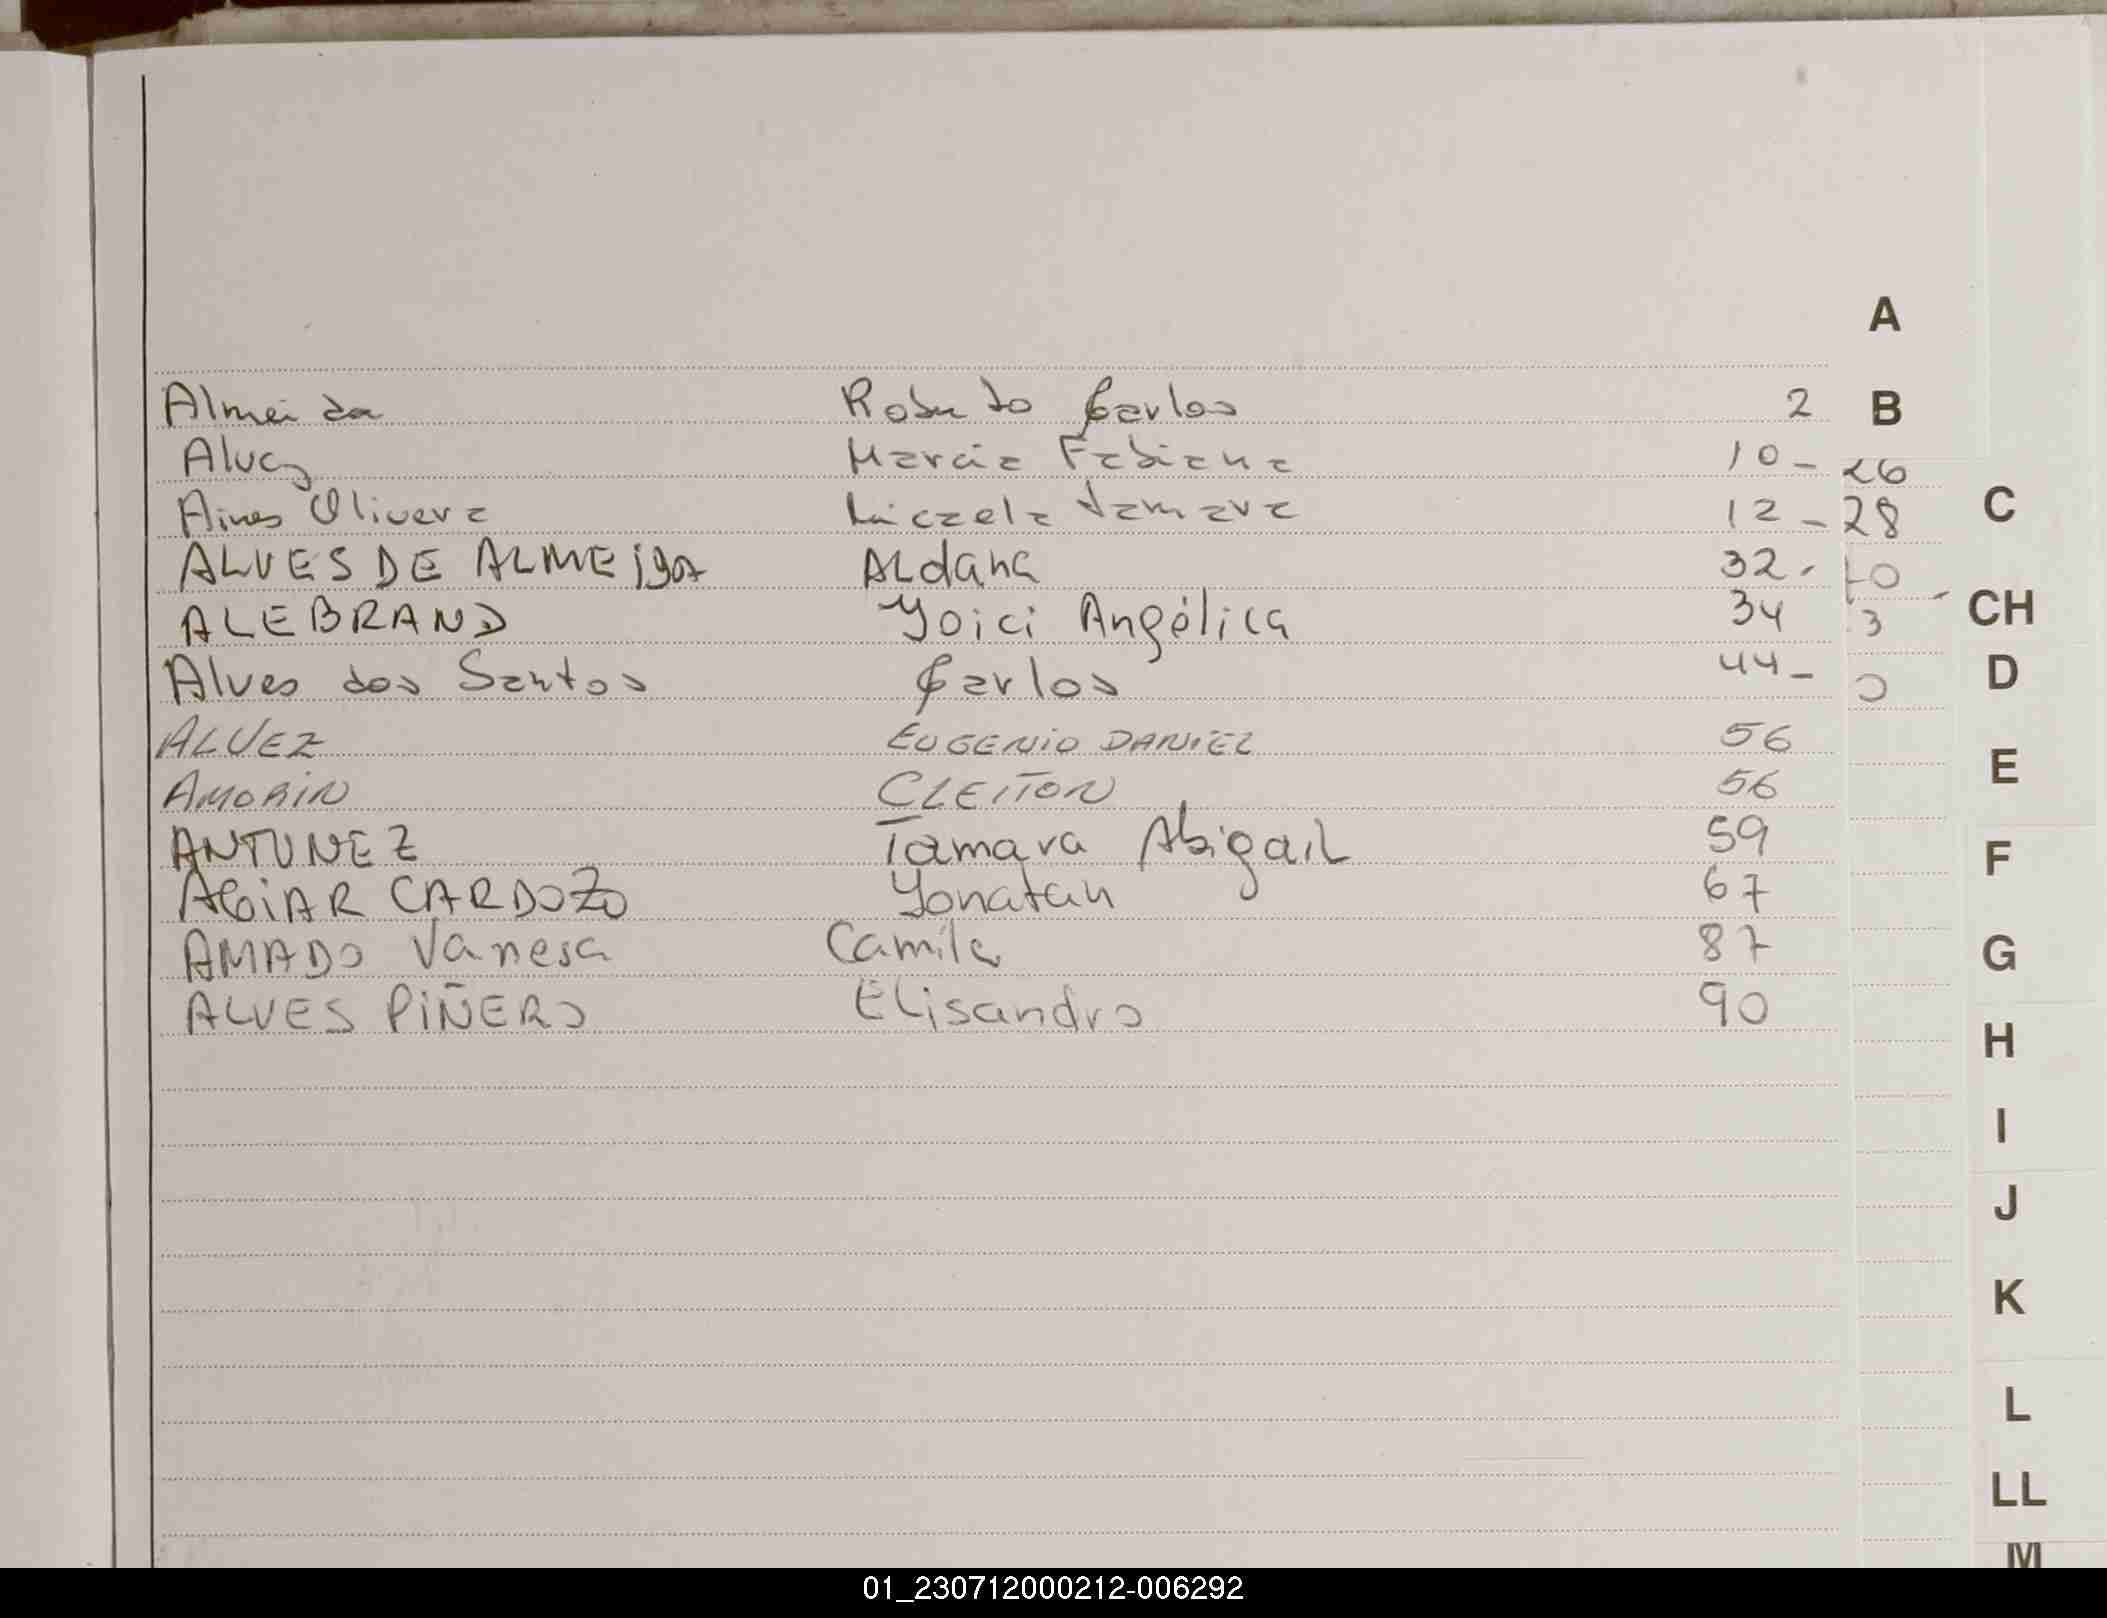 A
Almeida Roberto Carlos 2 B
Alvez Marcia Fabiana 10 - 26
Aires Olivera Micaela Tamara 12 - 28 C
ALVES DE ALMEIDA ALdana 32.
ALEBRAND Yoici Angélica 34 3 CH
Alves dos Santos Carlos 44 - D
ALVEZ EUGENIO DANIEL 56
AMORIN CLEITON 56 E
ANTUNEZ Tamara Abigail 59 F
AGIAR CARDOZO Yonatan 67
AMADO Vanesa Camila 87 G
ALVES PIÑERO Elisandro 90
H
I
J
K
L
LL
M
01_230712000212-006292